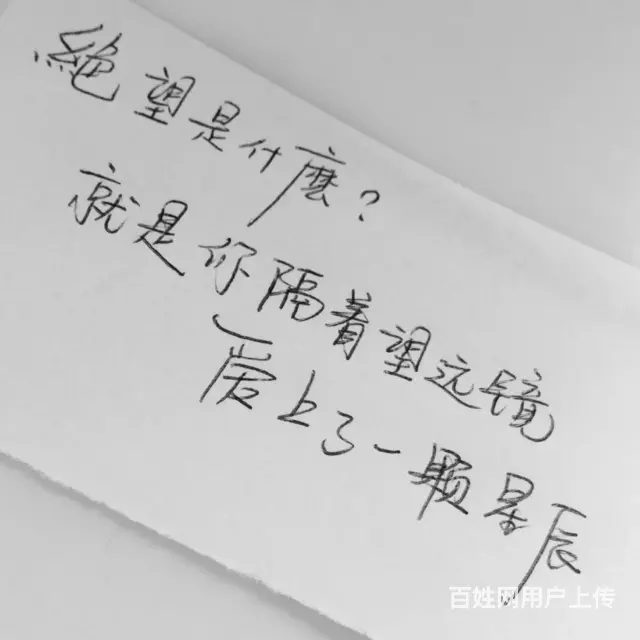 絕望是什麼?
就是你隔着望远镜
爱上了一颗星辰
百姓网用户上传